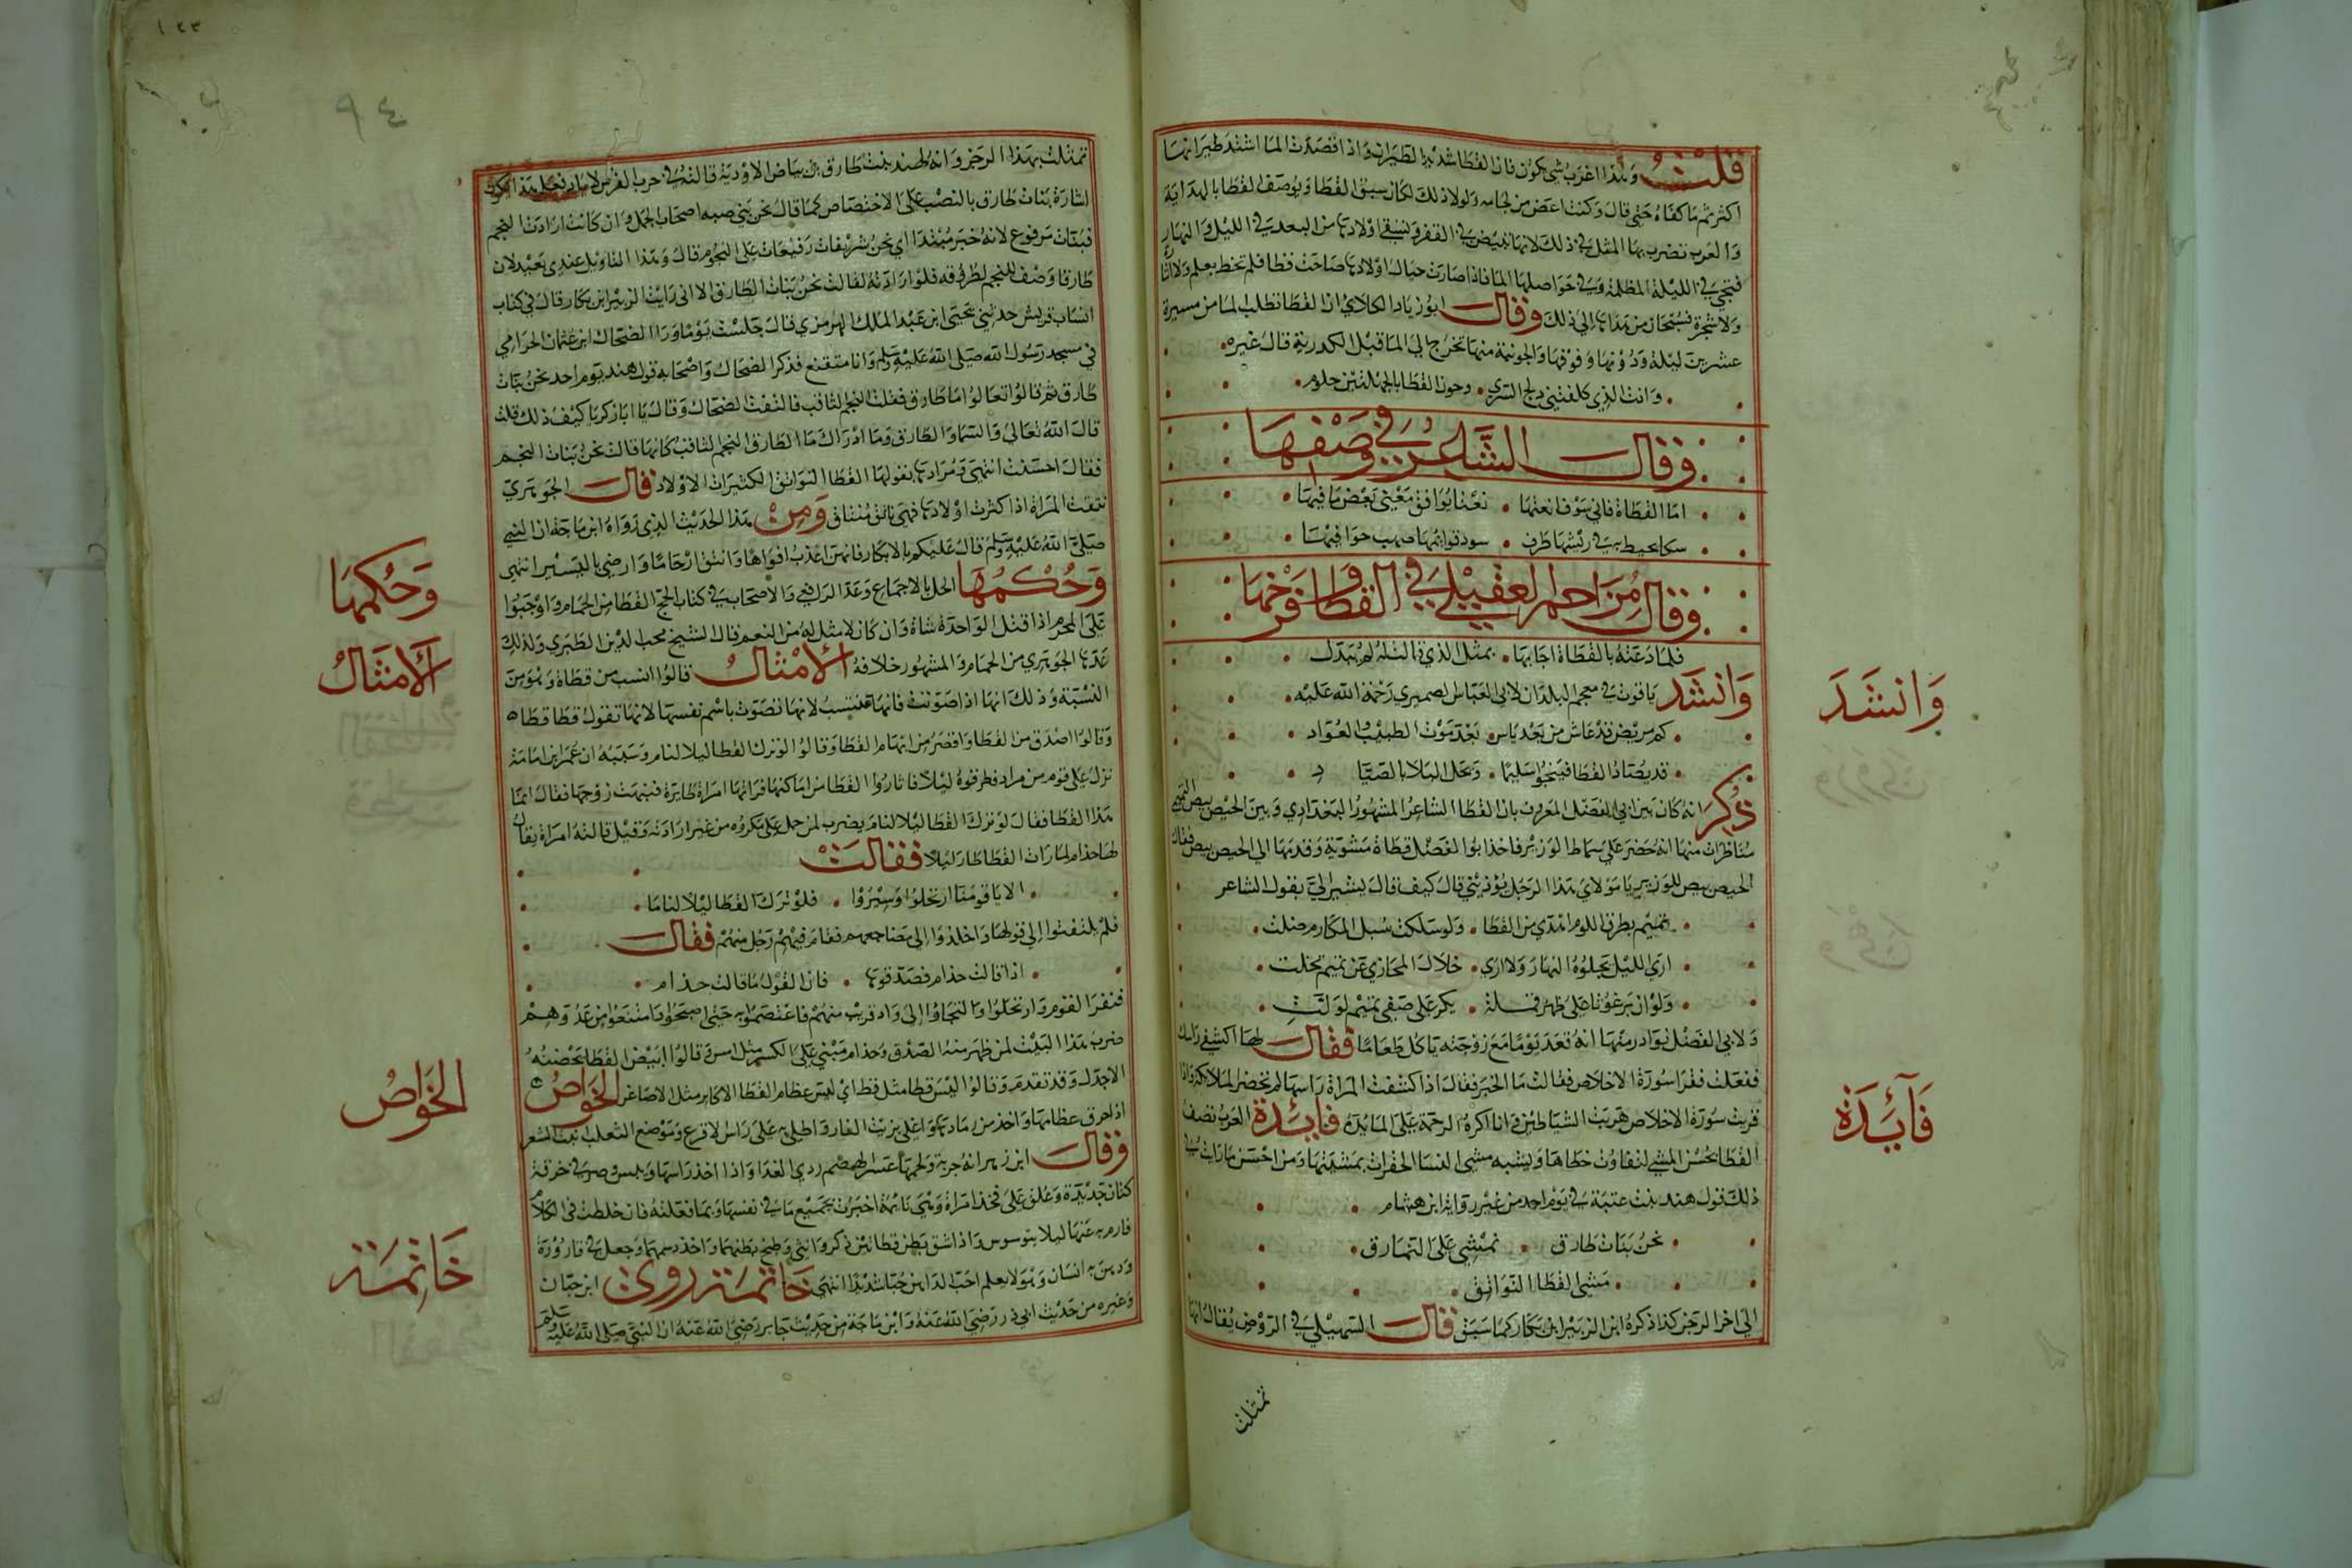 قلت وهذا اغرب شي يكون فان القطا شديد الطيران واذا قصدت الما اشتد طيرانها
اكثر ثم ما كفاه حتى قال وكنت اغض من لجامه ولولا ذلك لكان سبق القطا ويوصف القطا بالهداية
والعرب تضرب بها المثل في ذلك لانها تبيض في القفر وتسقي اولادها من البعد في الليل والنهار
فتجي في الليلة المظلمة وفي حواصلها الما فاذا صارت حيال اولادها صاحت قطا قطا فلم تخط بعلم ولا اشارة
ولا شجرة فسبحان من هداها الى ذلك وقال ابو زياد الكلابي ان القطا تطلب الما من مسيرة
عشرين ليلة ودونها وفوقها والجونية منها تخرج الى الما قبل الكدرية قال غيره
وانت الذي كلفتني دلج السرى وجون القطا بالجلهتين جثوم
وقال الشاعر في وصفها
اما القطاة فاني سوف انعتها نعتا يوافق معنى بعض ما فيها
سكا يخيط به في ريشها طرف سود قوادمها صهب خوافيها
وقال مزاحم العقيلي في القطا وفرخها
فلما دعته بالقطاة اجابها بمثل الذي قالت له لم تبدل
وانشد ياقوت في معجم البلدان لابي العباس الصميري رحمة الله عليه
وانشد
كم مريض قد عاش من بعد ياس بعد موت الطبيب والعواد
قد يصاد القطا فينجو سليما وتحل البلايا بالصياد
ذكر انه كان بين ابي الفضل المعروف بابن القطا الشاعر المشهور البغدادي وبين الحيص بيص التميمي
مناظرات منها انه حضر على سماط الوزير فاخذ ابو الفضل قطاة مشوية وقدمها الى الحيص بيص فقال
الحيص بيص للوزير يا مولاي هذا الرجل يوذيني قال كيف قال يشير الى بقول الشاعر
تميم بطرق اللوم اهدى من القطا ولو سلكت سبل المكارم ضلت
ارى الليل يجلوه النهار ولا ارى خلال المخازي عن تميم تجلت
ولو ان برغوثا على ظهر قملة يكر على صفي تميم لولت
ولابي الفضل نوادر منها انه قعد يوما مع زوجته ياكل طعاما فقال لها اكشفي راسك
ففعلت فقرا سورة الاخلاص فقالت ما الخبر فقال اذا كشفت المراة راسها لم تحضر الملايكة واذا
قريت سورة الاخلاص هربت الشياطين وانا اكره الزحمة على المايدة فايدة العرب تصف
فايدة
القطا بحسن المشي لتقارب خطاها ويشبه مشي النسا الخفرات بمشيتها ومن احسن ما رايت في
ذلك قول هند بنت عتبة في يوم احد من غير رواية ابن هشام
نحن بنات طارق نمشي على النمارق
مشي القطا النواتق
الى اخر الرجز كذا ذكره ابن الزبير ابن بكار كما سبق قال السهيلي في الروض يقال انها
تمثلت
١٢٣
٩٤
تمثلت بهذا الرجز وانه لهند بنت طارق بن بياض الاودية قالته في حرب الفرس لاياد فعلى هذا يكون
اشارة بنات طارق بالنصب على الاختصاص كما قال نحن بني ضبه اصحاب الجمل وان كانت ارادت النجم
فبنات مرفوع لانه خبر مبتدا اي نحن شريفات رفيعات على النجوم قال وهذا التاويل عندي بعيد لان
طارقا وصف للنجم لطروقه فلو ارادته لقالت نحن بنات الطارق الا اني رايت الزبير ابن بكار قال في كتاب
انساب قريش حدثني يحيى ابن عبد الملك الهرمزي قال جلست يوما ورا الضحاك ابن عثمان الحزامي
في مسجد رسول الله صلى الله عليه وسلم وانا متقنع فذكر الضحاك واصحابه قول هند يوم احد نحن بنات
طارق ثم قالوا تعالوا ما طارق فقلت النجم الثاقب فالتفت الضحاك وقال يا ابا زكريا كيف ذلك قلت
قال الله تعالى والسما والطارق وما ادراك ما الطارق النجم الثاقب كانها قالت نحن بنات النجم
فقال احسنت انتهى ومرادها بقولها القطا النواتق الكثيرات الاولاد قال الجوهري
نتقت المراة اذا كثرت اولادها فهي ناتق ومنتاق ومن هذا الحديث الذي رواه ابن ماجة ان النبي
صلى الله عليه وسلم قال عليكم بالابكار فانهن اعذب افواها وانتق ارحاما وارضى باليسير انتهى
وحكمها الحل بالاجماع وعد الرافعي والاصحاب في كتاب الحج القطا من الحمام واوجبوا
وحكمها
على المحرم اذا قتل الواحدة شاة وان كان لا مثل له من النعم قال الشيخ محب الدين الطبري ولذلك
عدها الجوهري من الحمام والمشهور خلافه الامثال قالوا انسب من قطاة وهو من
الامثال
النسبة وذلك انها اذا صوتت فانها تنتسب لانها تصوت باسم نفسها لانها تقول قطا قطا
وقالوا اصدق من القطا واقصر من ابهام القطا وقالوا لو ترك القطا ليلا لنام وسببه ان عمر ابن امامة
نزل على قوم من مراد فطرقوه ليلا فاثاروا القطا من اماكنها فراتها امراة طايرة فنبهت زوجها فقال انما
هذا القطا فقال لو ترك القطا ليلا لنام يضرب لمن حمل على مكروه من غير ارادته وقيل قالته امراة يقال
لها حذام لما رات القطا طار ليلا فقالت
الا يا قومنا ارتحلوا وسيروا فلو ترك القطا ليلا لناما
فلم يلتفتوا الى قولها واخلدوا الى مضاجعهم فقام فيهم رجل منهم فقال
اذا قالت حذام فصدقوها فان القول ما قالت حذام
فنفر القوم وارتحلوا والتجاوا الى واد قريب منهم فاعتصموا به حتى اصبحوا وامتنعوا من عدوهم
ضرب هذا البيت لمن ظهر منه الصدق وحذام مبني على الكسر قالوا ابيض القطا يحضنه
الاجدل وقد تقدم وقالوا ليس قطا مثل قطي اي ليس عظام القطا الاكابر مثل الاصاغر الخواص
الخواص
اذا حرق عظامها واخذ من رمادها واغلي بزيت الفار واطلي به على راس الاقرع وموضع الثعلب نبت الشعر
وقال ابن زهر انه جربه ولحمها عسر الهضم ردي الغذا واذا اخذ راسها ويبس وصر في خرقة
كتان جديدة وعلق على فخذ امراة وهي نايمة اخبرت بجميع ما في نفسها وبما فعلته فان خلطت في الكلام
فارم به عنها ليلا توسوس واذا شق بطن قطاتين ذكر وانثى وطبخ بطنهما واخذ دسمهما وجعل في قارورة
ودهن به انسان وهو لا يعلم احب الداهن حبا شديدا انتهى خاتمة روى ابن حبان
خاتمة
وغيره من حديث ابي ذر رضي الله عنه وابن ماجة من حديث جابر رضي الله عنه ان النبي صلى الله عليه وسلم